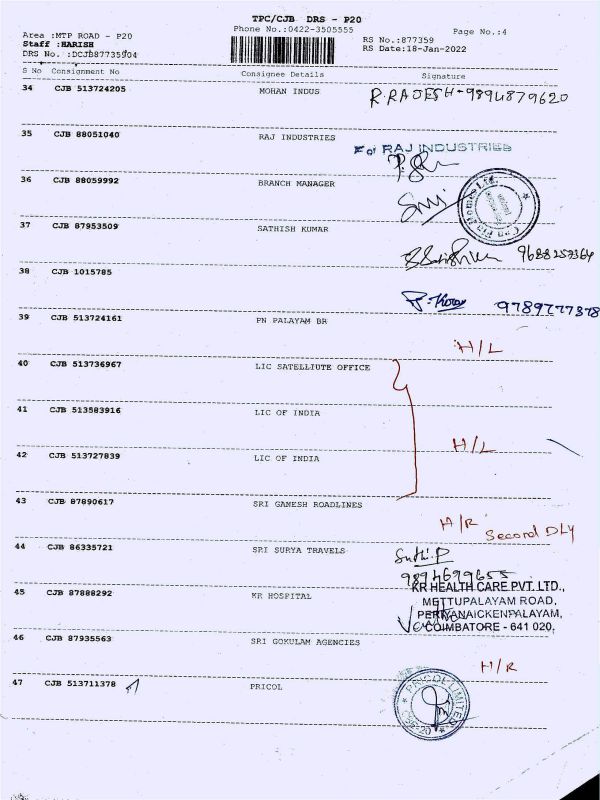 TPC/CJB DRS - P20
Area :MTP ROAD - P20
Phone No.:0422-3505555
Page No.:4
Staff :HARISH
RS No.:877359
DRS No. :DCJB87735904
RS Date:18-Jan-2022
S No Consignment No Consignee Details Signature
34 CJB 513724205 MOHAN INDUS R.RAJESH-9894879620
35 CJB 88051040 RAJ INDUSTRIES
For RAJ INDUSTRIES
36 CJB 88059992 BRANCH MANAGER
Can Fin Homes Ltd.
37 CJB 87953509 SATHISH KUMAR
9688257364
38 CJB 1015785
9789777378
39 CJB 513724161 PN PALAYAM BR
H/L
40 CJB 513736967 LIC SATELLIUTE OFFICE
41 CJB 513583916 LIC OF INDIA
H/L
42 CJB 513727839 LIC OF INDIA
43 CJB 87890617 SRI GANESH ROADLINES
H/R Second DLY
44 CJB 86335721 SRI SURYA TRAVELS
9894699655
45 CJB 87888292 KR HOSPITAL
KR HEALTH CARE PVT. LTD.,
METTUPALAYAM ROAD,
PERIYANAICKENPALAYAM,
COIMBATORE - 641 020.
46 CJB 87935563 SRI GOKULAM AGENCIES
H/R
47 CJB 513711378 PRICOL
PRICOL LIMITED